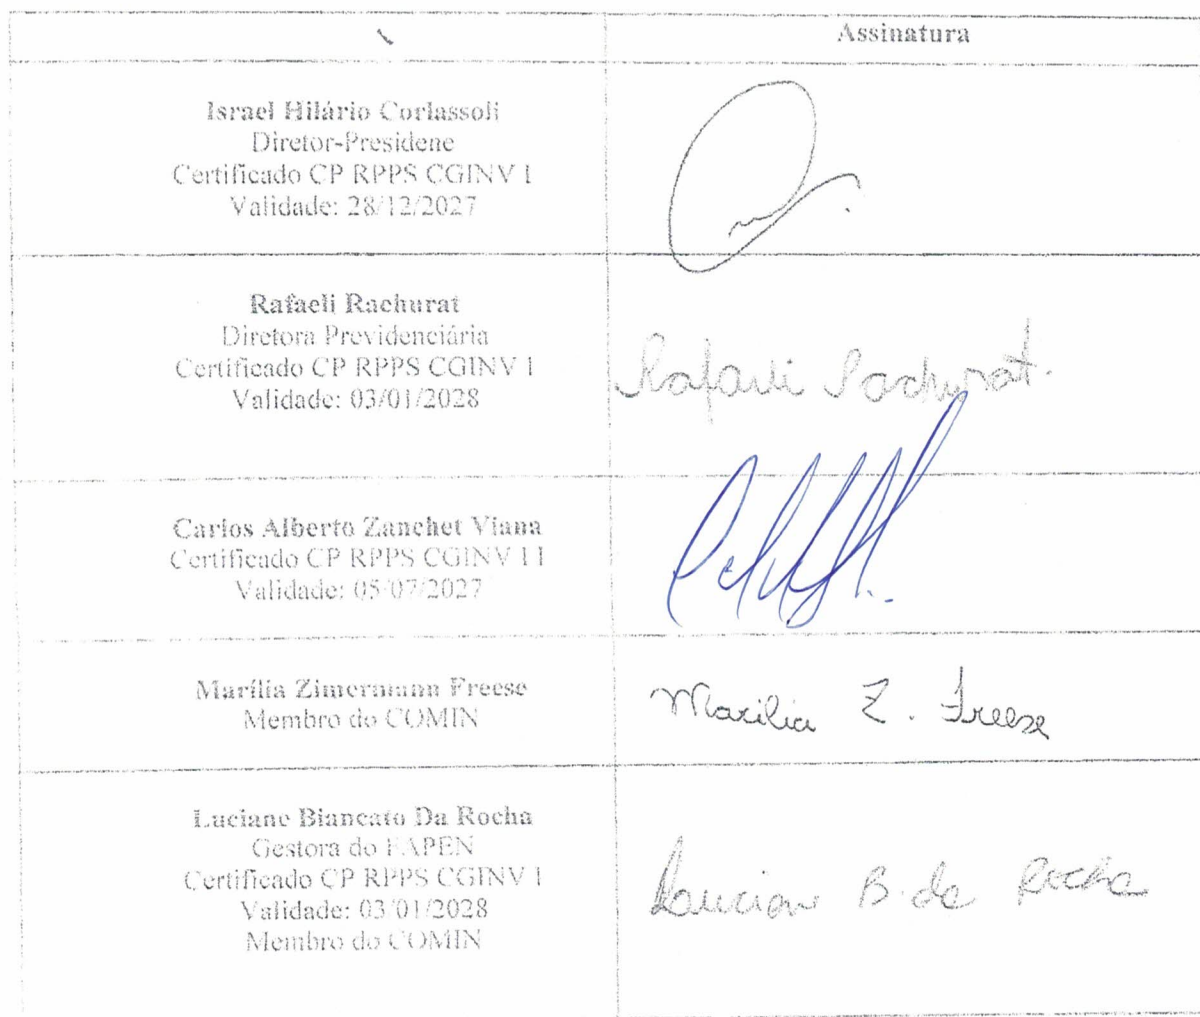 Assinatura
Israel Hilário Corlassoli
Diretor-Presidene
Certificado CP RPPS CGINV I
Validade: 28/12/2027
Rafaeli Rachurat
Diretora Previdenciária
Certificado CP RPPS CGINV I
Validade: 03/01/2028
Rafaeli Rachurat.
Carlos Alberto Zanchet Viana
Certificado CP RPPS CGINV I I
Validade: 05/07/2027
Marília Zimermann Freese
Membro do COMIN
Marilia Z. Freese
Luciane Biancato Da Rocha
Gestora do FAPEN
Certificado CP RPPS CGINV I
Validade: 03/01/2028
Membro do COMIN
Luciane B. da Rocha